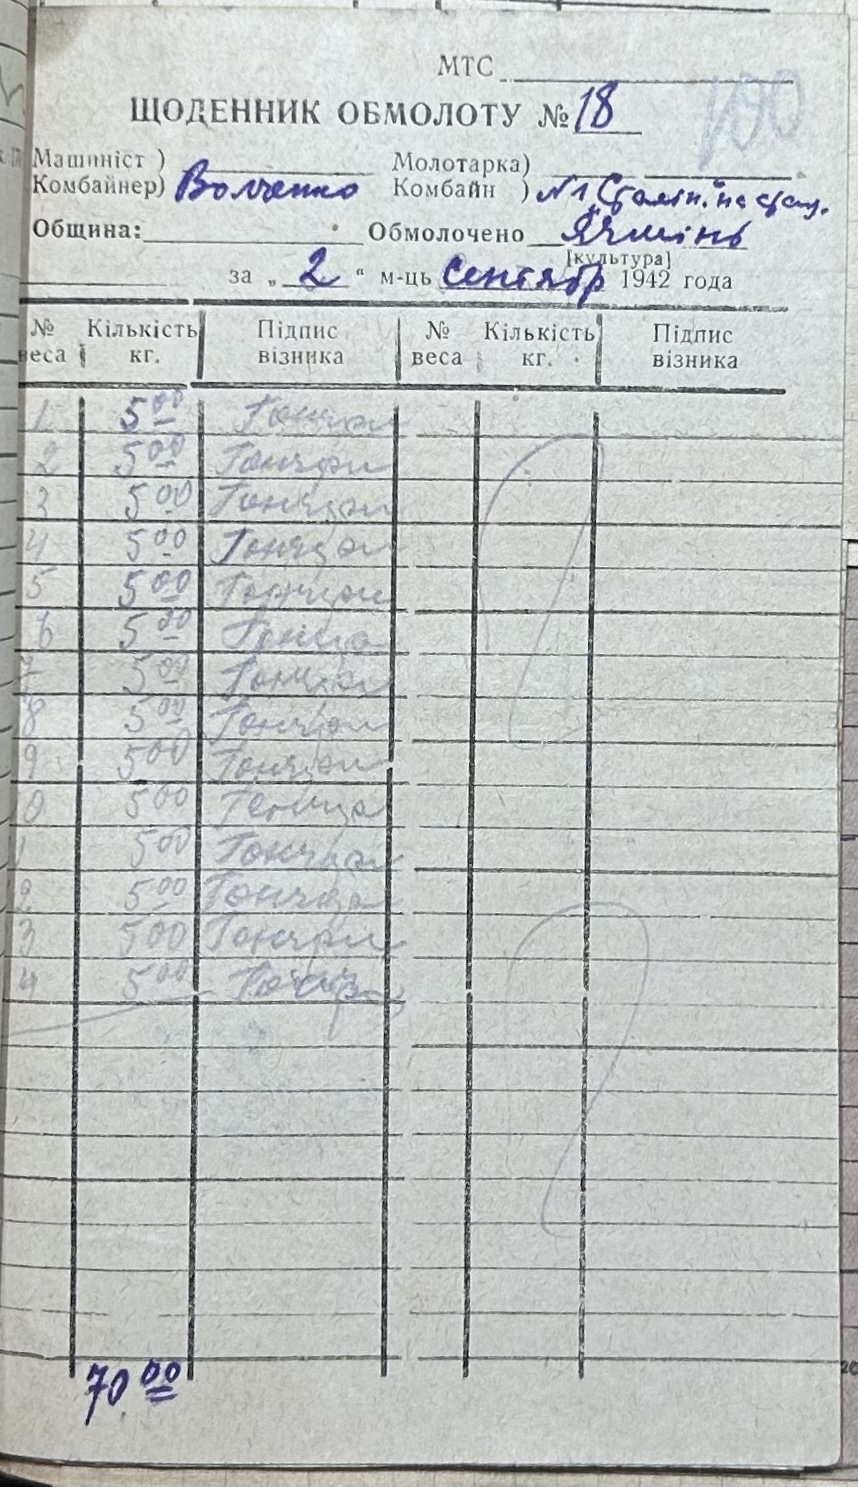 МТС
ЩОДЕННИК ОБМОЛОТУ № 18
100
Машиніст ) Молотарка)
Комбайнер) Волченко Комбайн ) №1 Сталін. на стац.
Община: Обмолочено Ячмінь
[культура]
за „ 2 “ м-ць Сентябр 1942 года
№ веса Кількість кг. Підпис візника № веса Кількість кг. Підпис візника
1 5 00 Гончар
2 5 00 Гончар
3 5 00 Гончар
4 5 00 Гончар
5 5 00 Гончар
6 5 00 Гонча
7 5 00 Гончар
8 5 00 Гончар
9 5 00 Гончар
0 5 00 Гонча
1 5 00 Гончар
2 5 00 Гончар
3 5 00 Гончар
4 5 00 Гончар
70 00